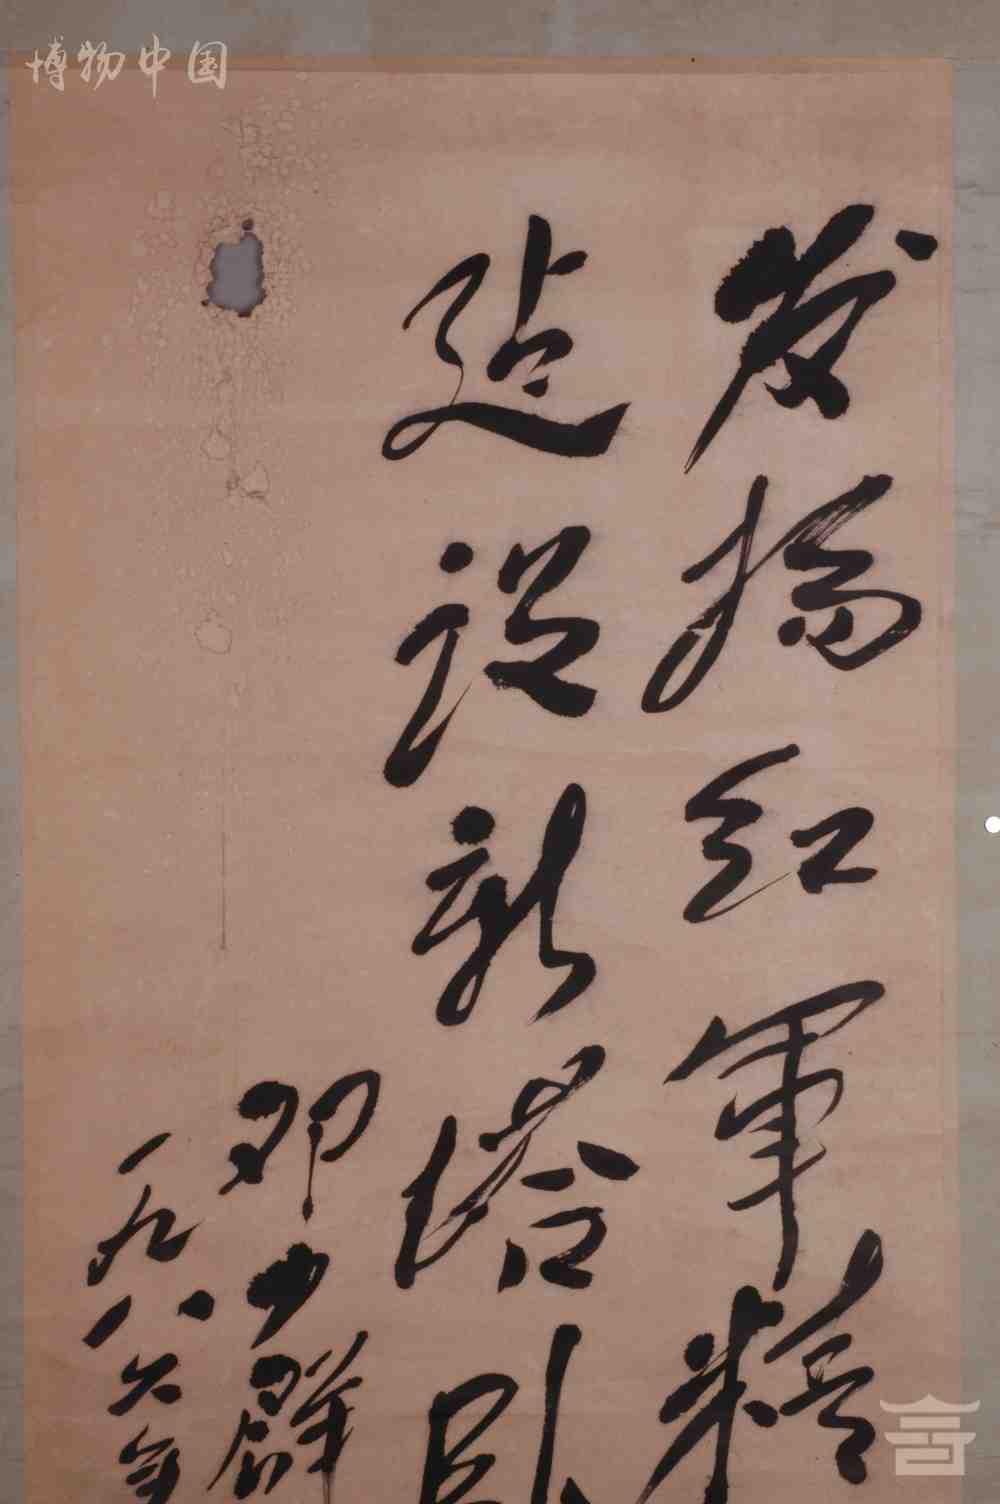 博物中国
发扬红军精
建设新塔卧
邓少群
一九八六年